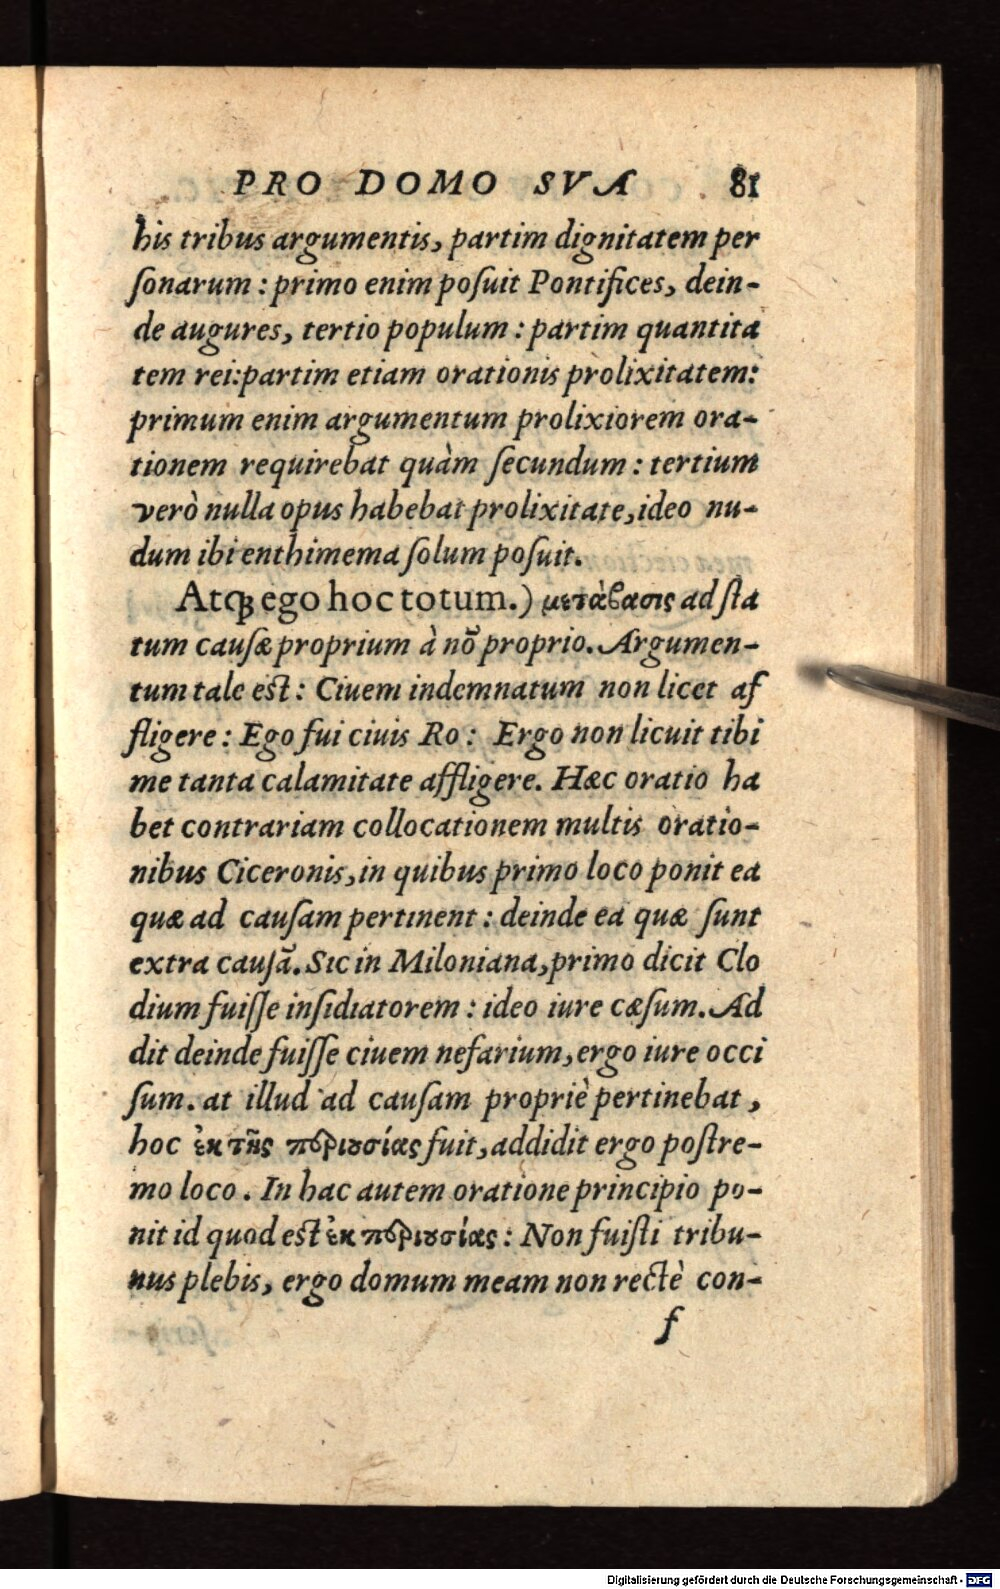 PRO DOMO SVA 81
his tribus argumentis, partim dignitatem per
ſonarum : primo enim poſuit Pontifices, dein-
de augures, tertio populum : partim quantita
tem rei:partim etiam orationis prolixitatem:
primum enim argumentum prolixiorem ora-
tionem requirebat quàm ſecundum : tertium
verò nulla opus habebat prolixitate, ideo nu-
dum ibi enthimema ſolum poſuit.
Atq́ꝫ ego hoc totum.) μετάβασις ad ſta
tum cauſæ proprium à nō proprio. Argumen-
tum tale est : Ciuem indemnatum non licet af
fligere : Ego fui ciuis Ro : Ergo non licuit tibi
me tanta calamitate affligere. Hæc oratio ha
bet contrariam collocationem multis oratio-
nibus Ciceronis, in quibus primo loco ponit ea
quæ ad cauſam pertinent : deinde ea quæ ſunt
extra cauſā. Sic in Miloniana, primo dicit Clo
dium fuiſſe inſidiatorem : ideo iure cæſum. Ad
dit deinde fuiſſe ciuem nefarium, ergo iure occi
ſum. at illud ad cauſam propriè pertinebat,
hoc ἐκ τῆς περιουσίας fuit, addidit ergo poſtre-
mo loco. In hac autem oratione principio po-
nit id quod est ἐκ περιουσίας : Non fuiſti tribu-
nus plebis, ergo domum meam non rectè con-
f
Digitalisierung gefördert durch die Deutsche Forschungsgemeinschaft - DFG